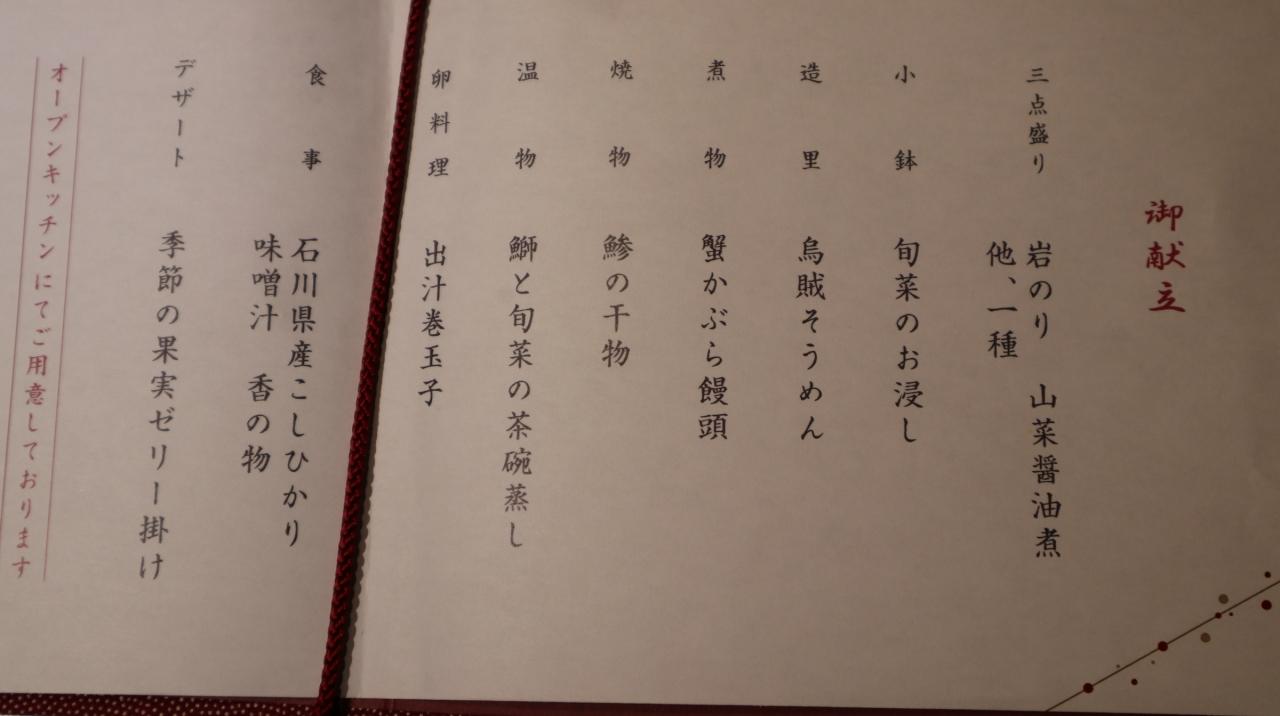 御献立
三点盛り 岩のり 山菜醤油煮
他、一種
小鉢 旬菜のお浸し
造里 烏賊そうめん
煮物 蟹かぶら饅頭
焼物 鯵の干物
温物 鰤と旬菜の茶碗蒸し
卵料理 出汁巻玉子
食事 石川県産こしひかり
味噌汁 香の物
デザート 季節の果実ゼリー掛け
オープンキッチンにてご用意しております